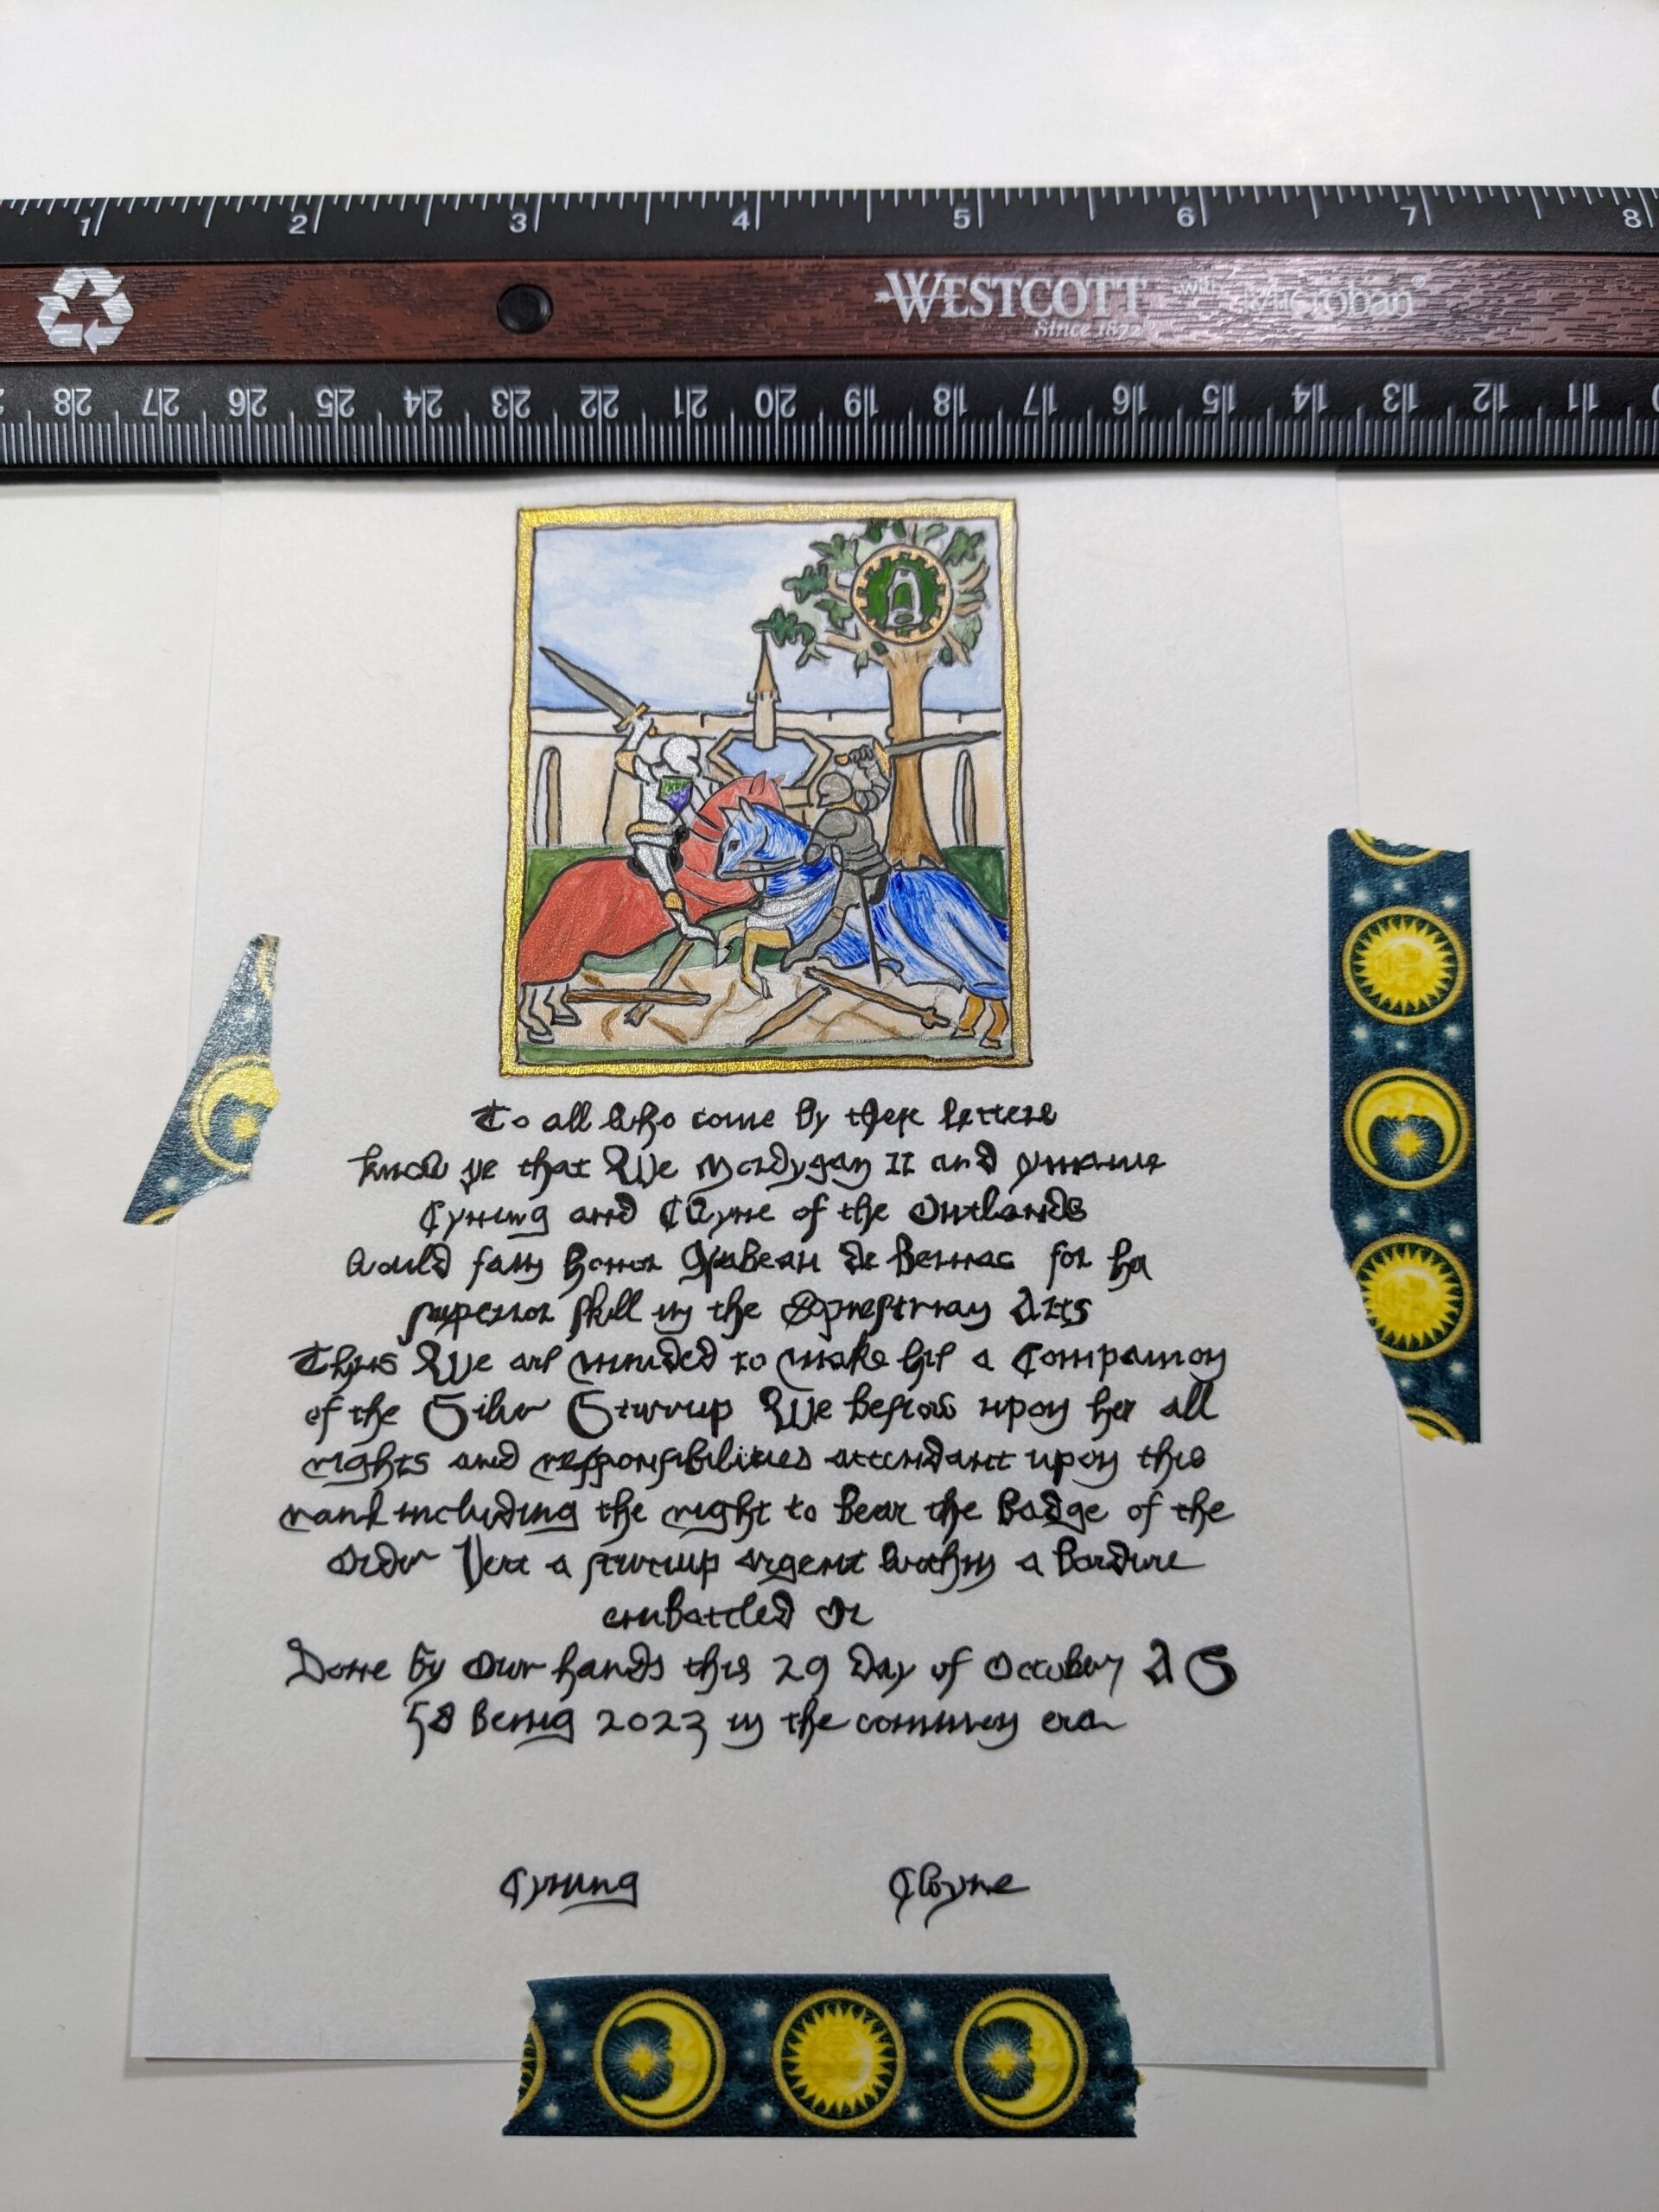 1 2 3 4 5 6 7 8
WESTCOTT with Microban®
Since 1872
28 27 26 25 24 23 22 21 20 19 18 17 16 15 14 13 12 11
To all who come by these letters
know ye that We Mordygan II and
Cynung and CWyne of the Outlands
would fayn honor Ysabeau de Bernac for her
superior skill in the Equestrian Arts
Thus We are minded to make her a Companion
of the Silver Stirrup We bestow upon her all
rights and responsibilities attendant upon this
rank including the right to bear the badge of the
Order Vert a stirrup argent within a bordure
embattled Or
Done by Our hands this 29 Day of October A S
58 Being 2023 in the common era
Cynung CWyne